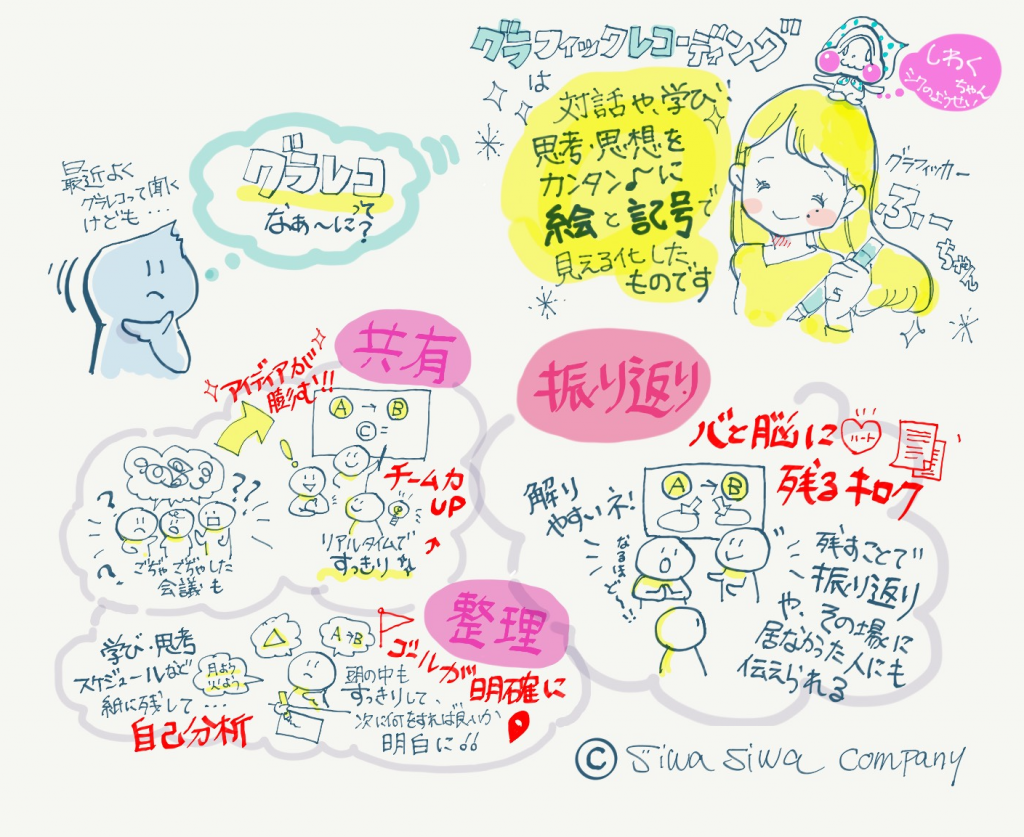 グラフィックレコーディング
は
対話や、学び
思考・思想を
カンタン♪に
絵と記号で
見える化した
ものです
しわく
ちゃん
シワのようせい
グラフィッカー
ふぃー
ちゃん
最近よく
グラレコって聞く
けども・・・
グラレコ
って
なぁ〜に?
共有
アイディアが
膨らむ!!
A → B
C =
チーム力
UP
? ??
?
!
ごぢゃごぢゃした
会議も
リアルタイムで
すっきり
振り返り
心と脳に
ハート
残るキロク
解り
やすいネ!
A → B
なるほ
ど〜!!
残すことで
振り返り
や、その場に
居なかった人にも
伝えられる
整理
学び・思考
スケジュールなど
紙に残して・・・
自己分析
月よう
火よう
A→B
ゴールが
明確に
頭の中も
すっきりして、
次に何をすれば良いか
明白に
© Siwa Siwa company